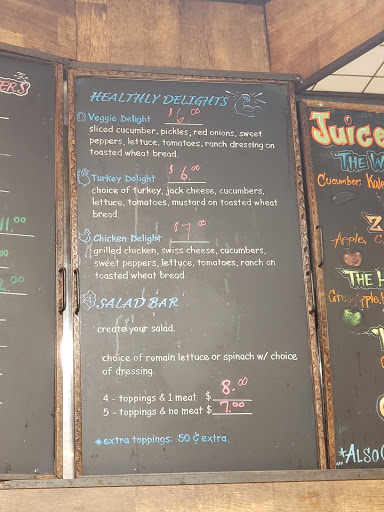 HEALTHLY DELIGHTS
Veggie Delight $6.00
sliced cucumber, pickles, red onions, sweet
peppers, lettuce, tomatoes, ranch dressing on
toasted wheat bread.
Turkey Delight $6.00
choice of turkey, jack cheese, cucumbers,
lettuce, tomatoes, mustard on toasted wheat
bread.
Chicken Delight $7.00
grilled chicken, swiss cheese, cucumbers,
sweet peppers, lettuce, tomatoes, ranch on
toasted wheat bread.
SALAD BAR
create your salad.
choice of romain lettuce or spinach w/ choice
of dressing.
4 - toppings & 1 meat $8.00
5 - toppings & no meat $7.00
*extra toppings: 50¢ extra.
Juice
THE
Cucumber, Kale
Apple,
THE